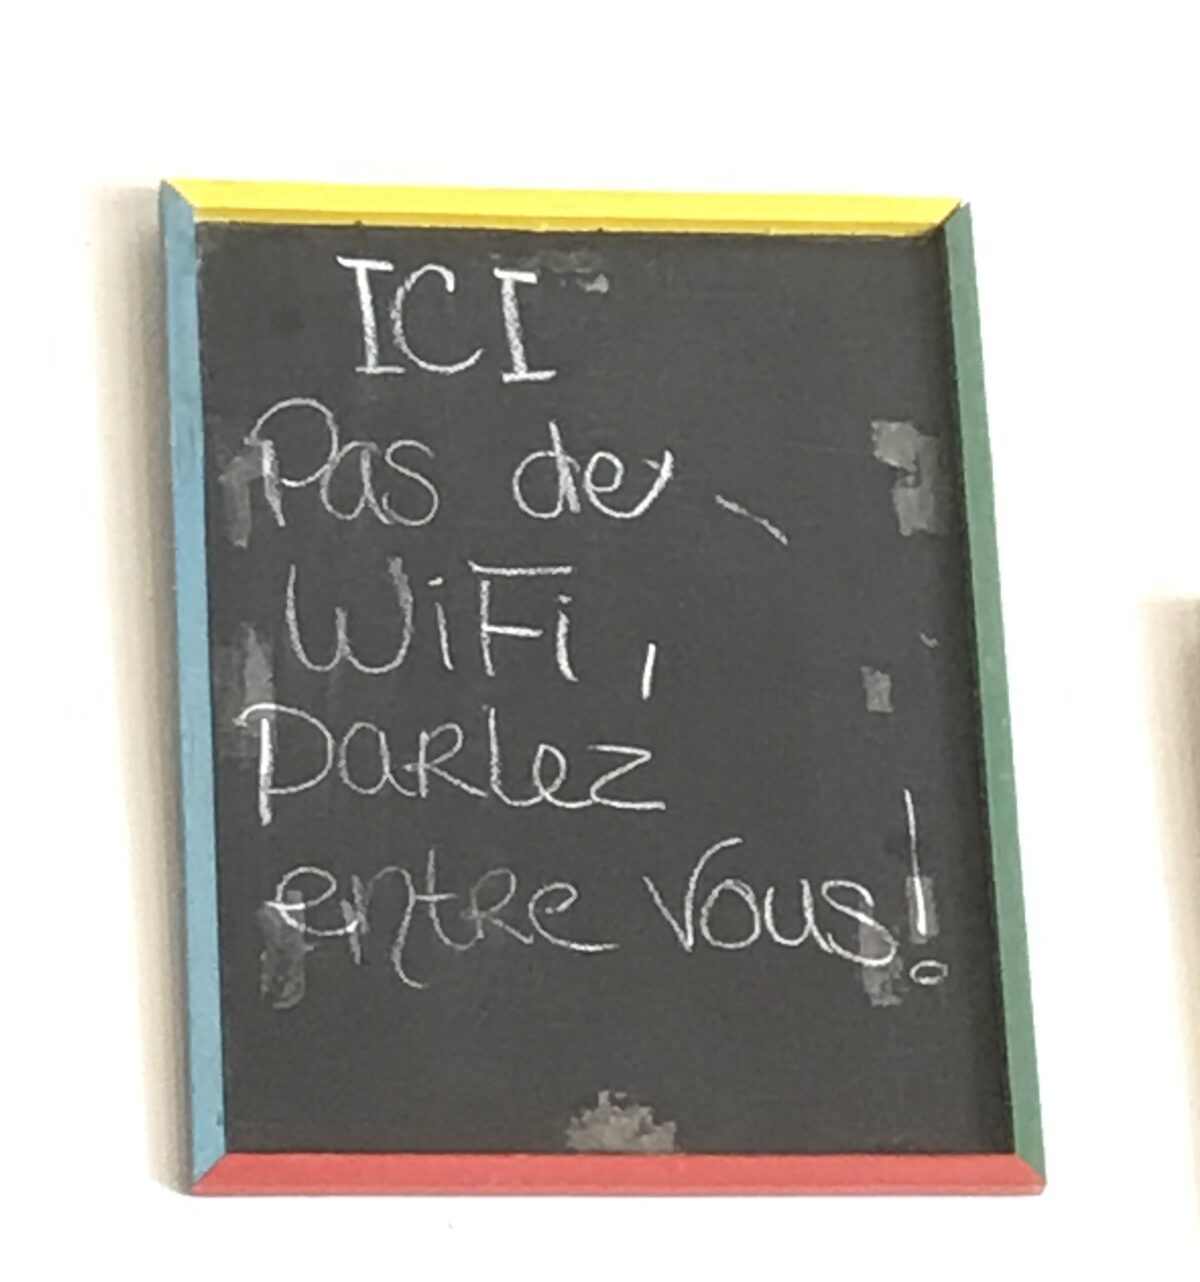 ICI
Pas de
WiFi,
Parlez
entre vous!